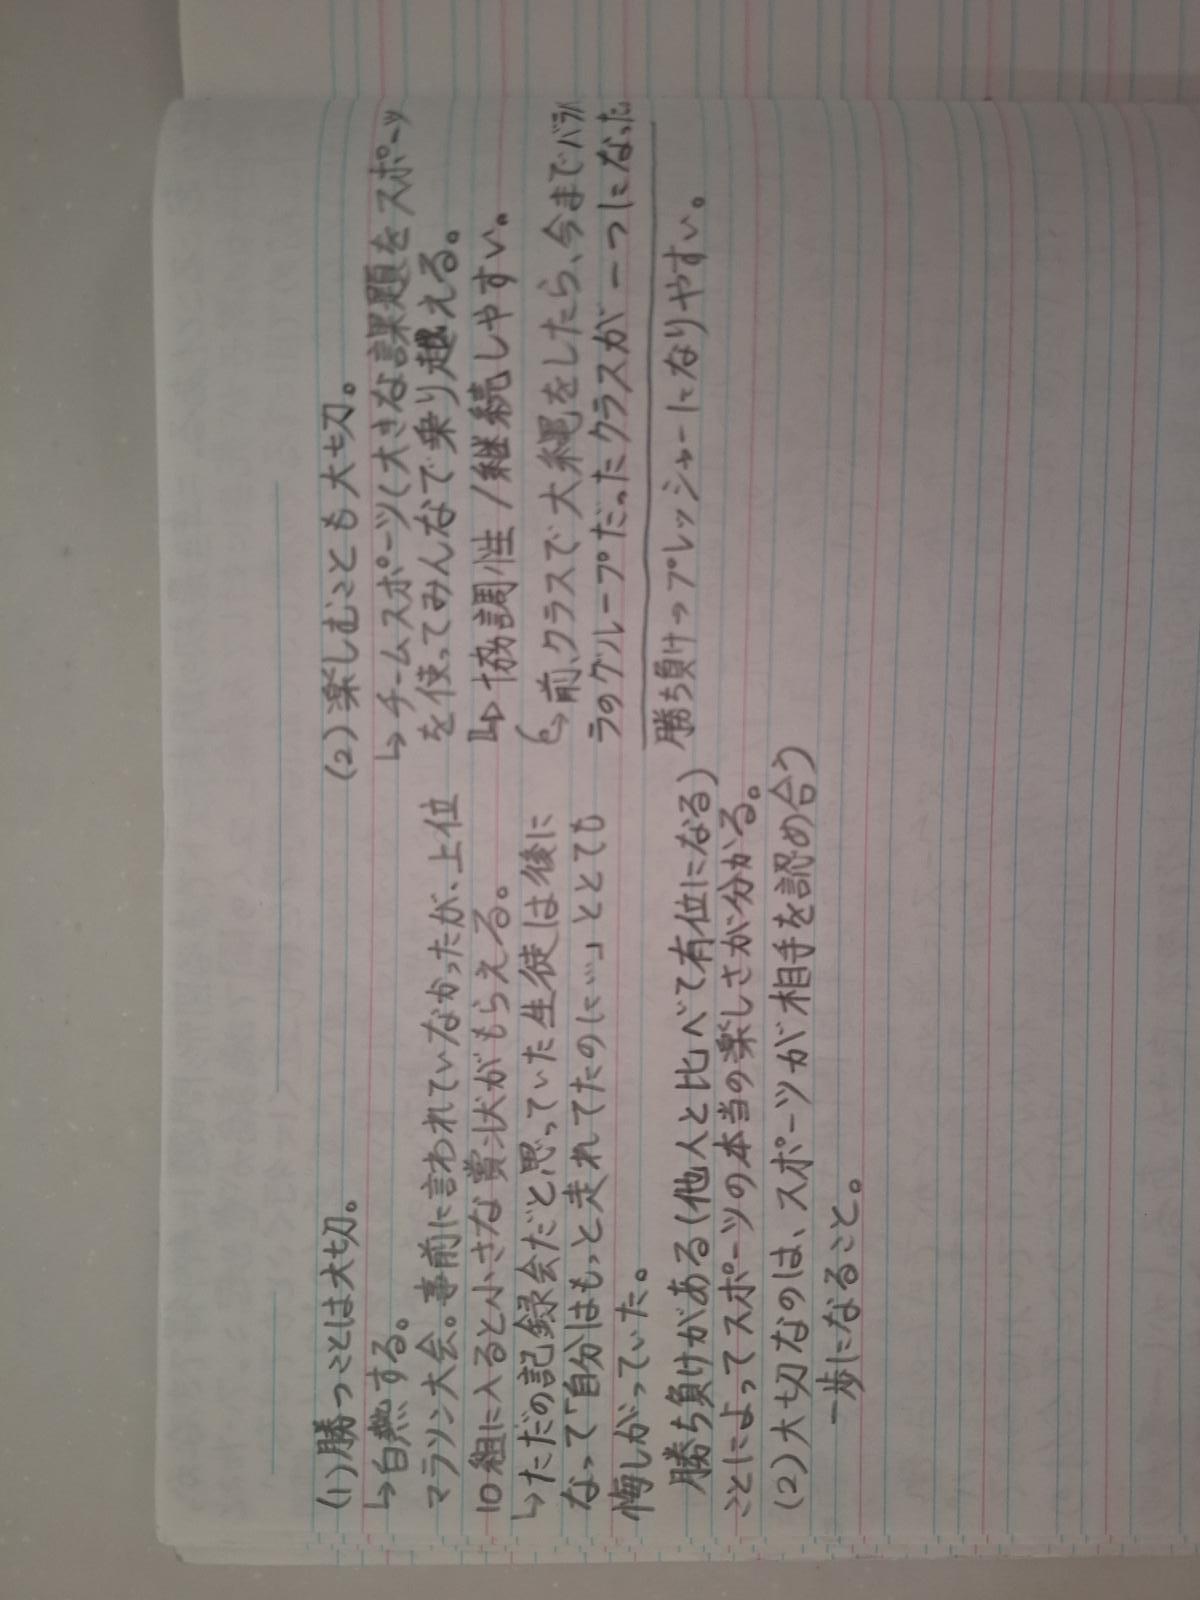 (1)勝つことは大切。
↳白熱する。
マラソン大会。事前に言われていなかったが、上位
10組に入ると小さな賞状がもらえる。
↳ただの記録会だと思っていた生徒は後に
なって「自分はもっと走れてたのに…」ととても
悔しがっていた。
勝ち負けがある(他人と比べて有位になる)
ことによってスポーツの本当の楽しさが分かる。
(2)大切なのは、スポーツが相手を認め合う
一歩になること。
(2)楽しむことも大切。
↳チームスポーツ(大きな課題をスポーツ
を使ってみんなで乗り越える。
↳協調性/継続しやすい。
↳前、クラスで大縄をしたら、今までバラバ
ラのグループだったクラスが一つになった
勝ち負け→プレッシャーになりやすい。